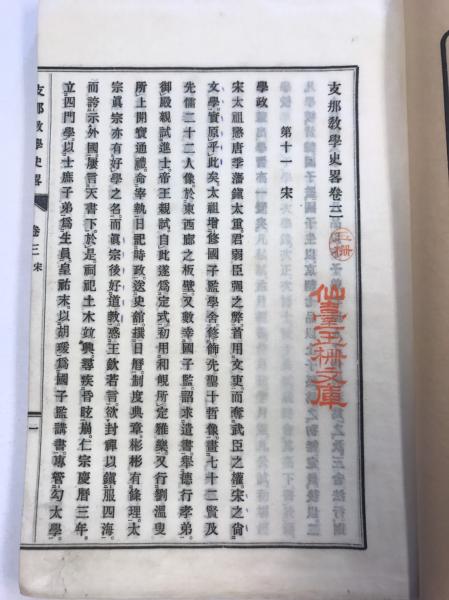 支那敎學史畧卷三
王冊
仙臺王冊文庫
第十一 宋
學政
宋太祖懲唐季藩鎭太重。君弱臣强之弊。首用文吏。而奪武臣之權。宋之尙
文學。實原乎此矣。太祖增修國子監學舍。修飾先聖十哲像。畫七十二賢及
先儒二十二人像於東西廊之板壁。又數幸國子監。詔求遺書。擧德行孝弟。
御殿親試進士。帝王親試。自此遂爲定式。初用和峴所定雅樂。又行劉溫叟
所上開寶通禮。命宰執日記時政。送史館撰日曆。制度典章。彬彬有條理。太
宗眞宗亦有好學之名。而眞宗後好道敎。惑王欽若言。欲封禪以鎭服四海。
而誇示外國。屢言天書下。於是祠祀土木竝興。尋疾昏眩崩。仁宗慶曆三年。
立四門學。以士庶子弟爲生員。皇祐末。以胡瑗爲國子監講書。專管勾太學。
支那敎學史畧 卷三 宋 一